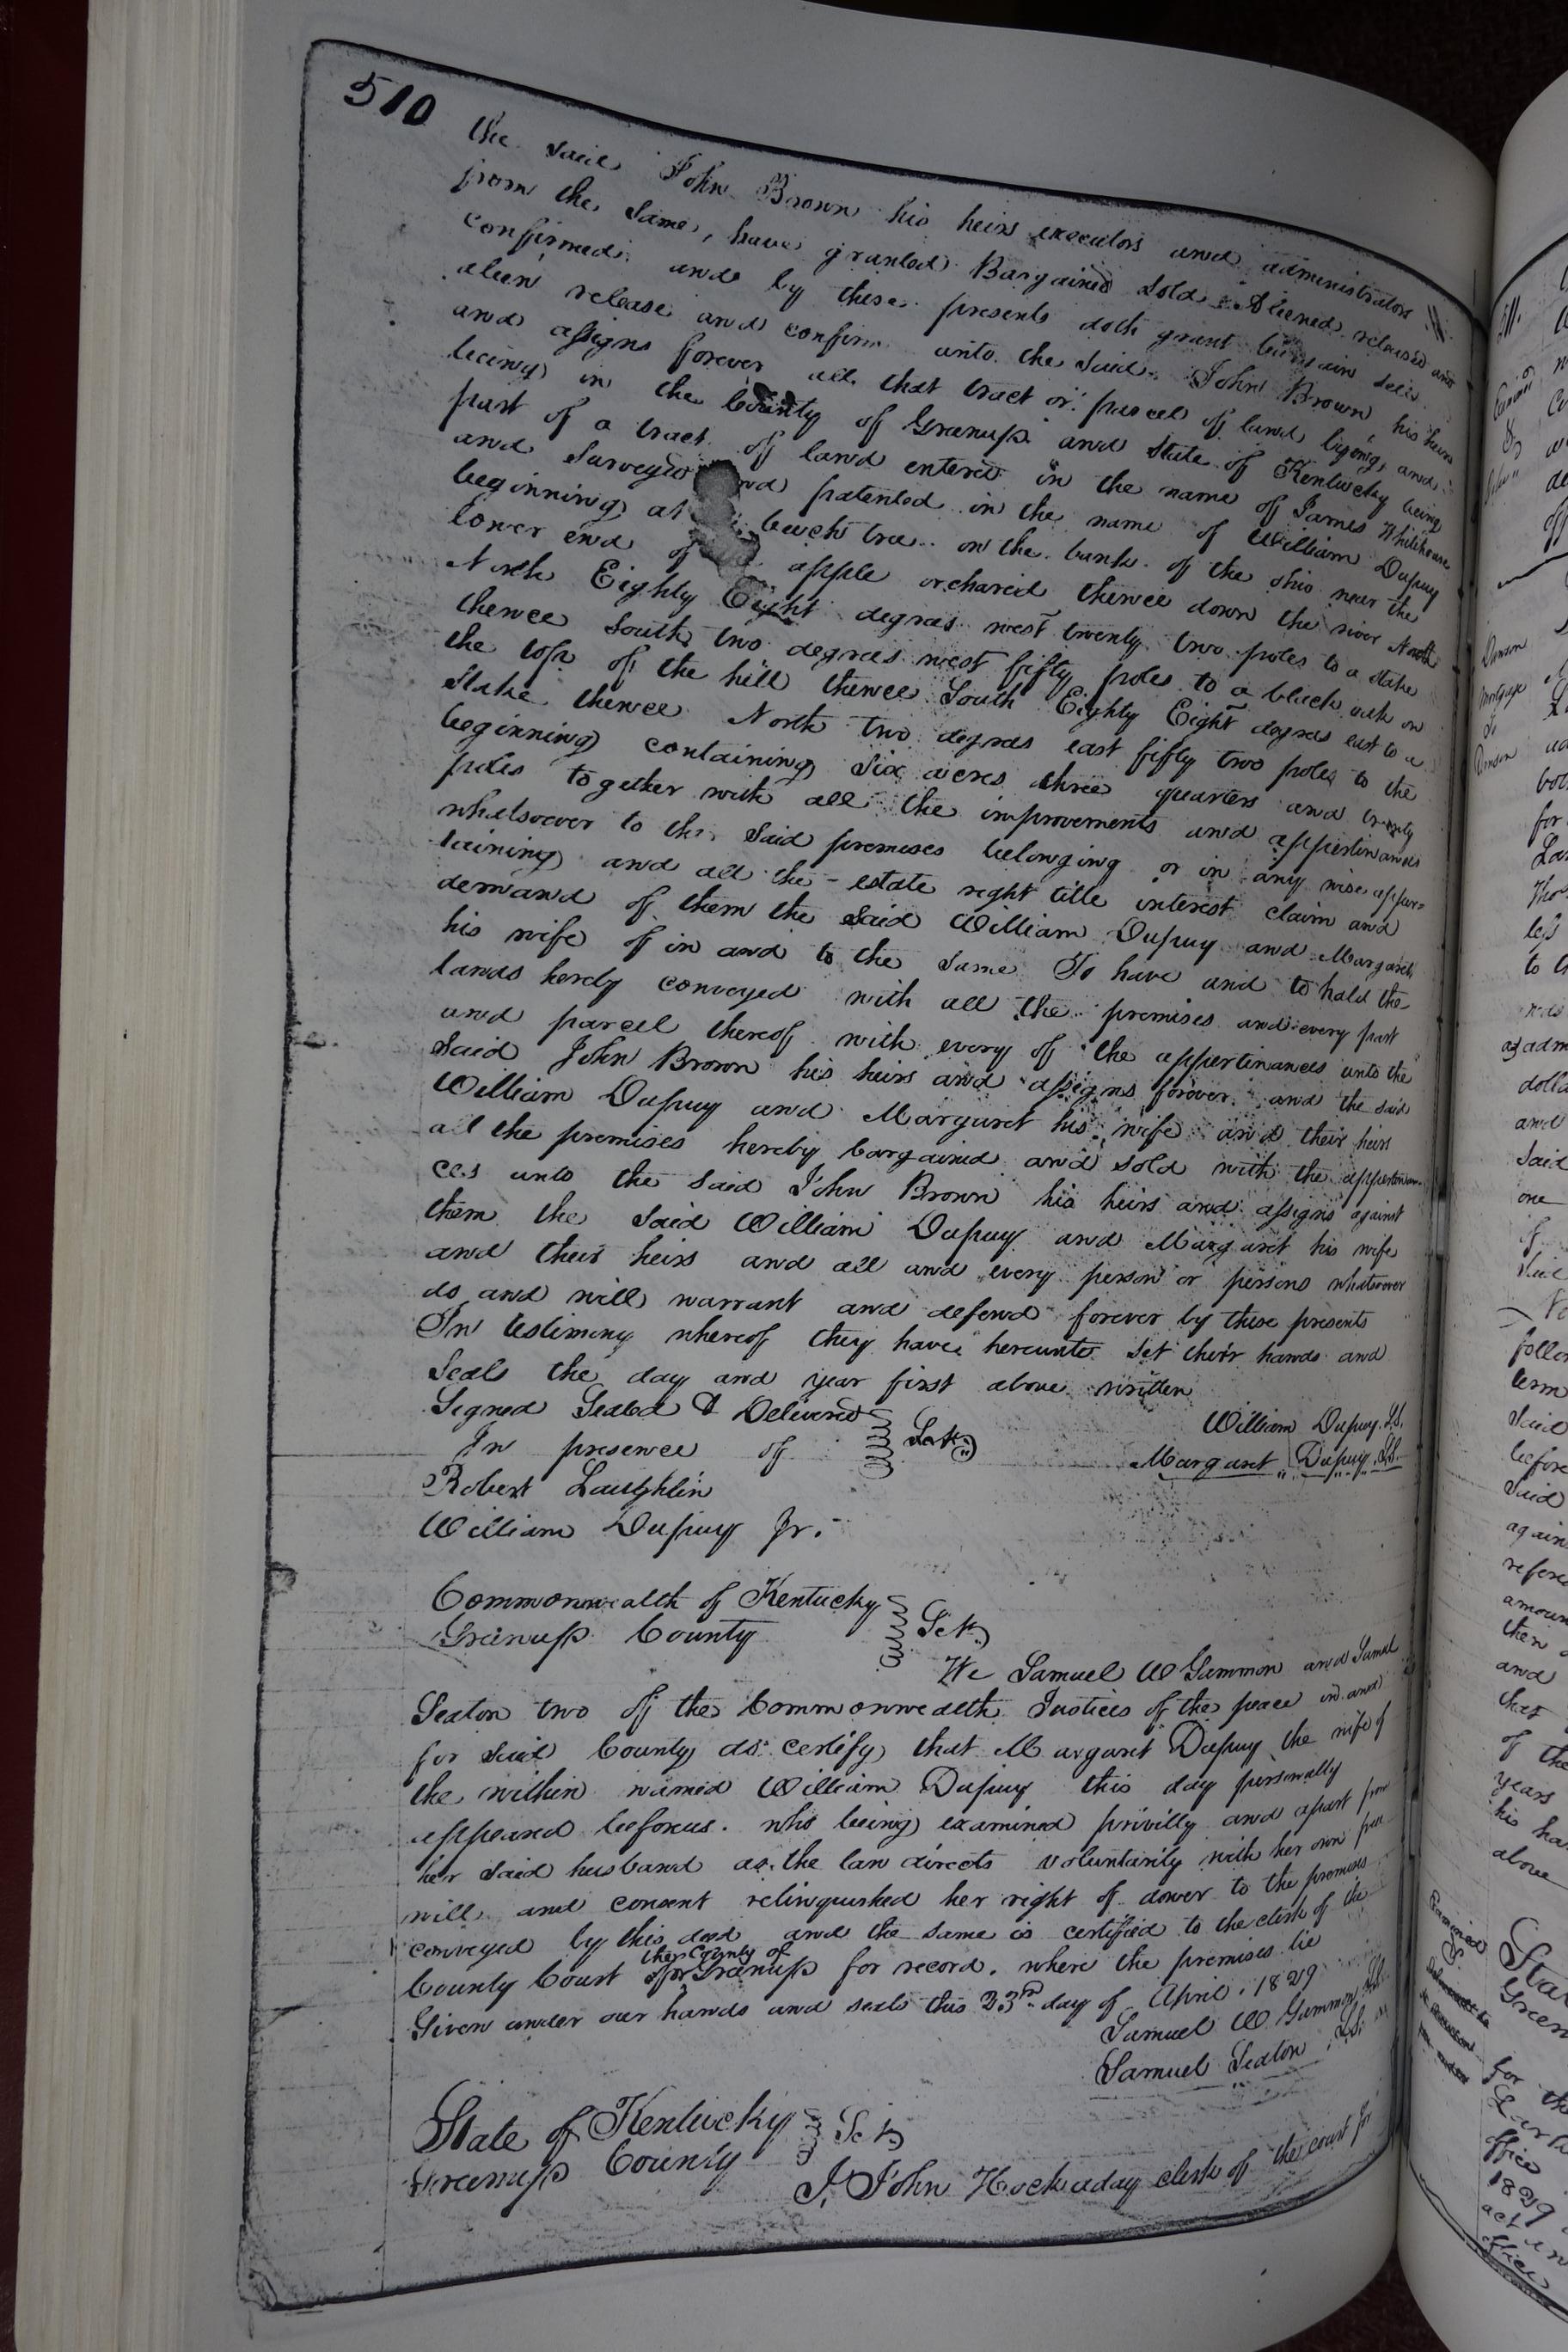 510
the said John Brown his heirs executors and administrators
from the same, have granted Bargained Sold Aliened released and
confirmed and by these presents doth grant bargain sell
alien release and confirm unto the said John Brown his heirs
and assigns forever all that tract or parcel of land lying and
being in the County of Greenup and State of Kentucky being
part of a tract of land entered in the name of James Whitehouse
and Surveyed and patented in the name of William Dupuy
beginning at beech tree on the bank of the ohio near the
lower end of apple orchard thence down the river North
North Eighty Eight degrees west twenty two poles to a stake
thence South two degrees west fifty poles to a black oak on
the top of the hill thence South Eighty Eight degrees east to a
Stake thence North two degrees east fifty two poles to the
beginning containing six acres three quarters and twenty
poles together with all the improvements and appertinances
whatsoever to the said premises belonging or in any wise apper=
taining and all the estate right title interest claim and
demand of them the said William Dupuy and Margaret
his wife of in and to the same To have and to hold the
lands hereby conveyed with all the premises and every part
and parcel thereof with every of the appertinances unto the
said John Brown his heirs and assigns forever and the said
William Dupuy and Margaret his wife and their heirs
all the premises hereby bargained and sold with the appertinan-
ces unto the said John Brown his heirs and assigns against
them the said William Dupuy and Margaret his wife
and their heirs and all and every person or persons whatsoever
do and will warrant and defend forever by these presents
In testimony whereof they have hereunto set their hands and
Seals the day and year first above written
Signed Sealed & Delivered
In presence of
William Dupuy L.S.
Margaret Dupuy L.S.
Robert Laughlin
William Dupuy Jr.
Commonwealth of Kentucky
Greenup County Sct
We Samuel W Gammon and Samuel
Seaton two of the Commonwealth Justices of the peace in and
for said County do certify that Margaret Dupuy the wife of
the within named William Dupuy this day personally
appeared before us. who being examined privilly and apart from
her said husband as the law directs voluntarily with her own free
will and consent relinquished her right of dower to the premises
conveyed by this deed and the same is certified to the clerk of the
the County of
County Court for Greenup for record. where the premises lie
Given under our hands and seals this 23rd day of April. 1829
Samuel W Gammon
Samuel Seaton
State of Kentucky
Greenup County Sct
I, John Hockaday clerk of the court for